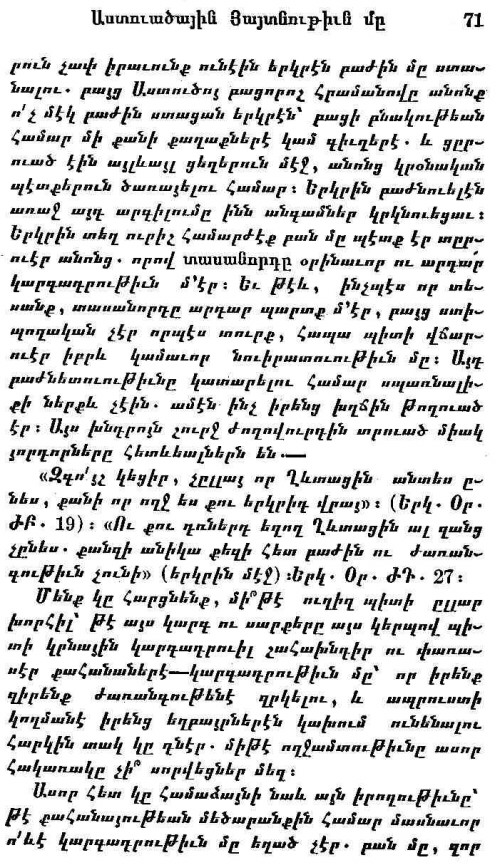 Աստուածային Յայտնութիւն մը 71
րուն չափ իրաւունք ունէին երկրէն բաժին մը ստա-
նալու. բայց Աստուծոյ բացորոշ Հրամանովը անոնք
ո՛չ մէկ բաժին ստացան երկրէն՝ բացի բնակութեան
Համար մի քանի քաղաքներէ կամ գիւղերէ. և ցըր-
ուած էին այլևայլ ցեղերուն մէջ, անոնց կրօնական
պէտքերուն ծառայելու Համար։ Երկրին բաժնուելէն
առաջ այդ արգիլումը ինն անգամներ կրկնուեցաւ։
Երկրին տեղ ուրիշ Համարժէք բան մը պէտք էր տըր-
ուէր անոնց. որով տասանորդը օրինաւոր ու արդար
կարգադրութիւն մ՚էր։ Եւ թէև, ինչպէս որ տե-
սանք, տասանորդը արդար պարտք մ՚էր, բայց ստի-
պողական չէր որպէս տուրք, Հապա պիտի վճար-
ուէր իբրև կամաւոր նուիրատուութիւն մը։ Այդ
բաժնետուութիւնը կատարելու Համար սպառնալի-
քի ներքև չէին. ամէն ինչ իրենց խղճին Թողուած
էր։ Այս խնդրոյն շուրջ ժողովուրդին տրուած միակ
յորդորները Հետևեալներն են.—
«Զգո՛յշ կեցիր, չըլլայ որ Ղևտացին անտես ը-
նես, քանի որ ողջ ես քու երկրիդ վրայ»։ (Երկ. Օր.
ԺԲ. 19)։ «Ու քու դռներդ եղող Ղևտացին ալ զանց
չընես. քանզի անիկա քեզի Հետ բաժին ու ժառան-
գութիւն չունի» (երկրին մէջ)։Երկ. Օր. ԺԴ. 27։
Մենք կը Հարցնենք, մի՞թէ ուղիղ պիտի ըլլար
խորհիլ՝ թէ այս կարգ ու սարքերը այս կերպով պի-
տի կրնային կարգադրուիլ շահախնդիր ու փառա-
սէր քահանաներէ—կարգադրութիւն մը՝ որ իրենք
զիրենք ժառանգութենէ զրկելու, և ապրուստի
կողմանէ իրենց եղբայրներէն կախում ունենալու
Հարկին տակ կը դնէր. միթէ ողջամտութիւնը ասոր
Հակառակը չի՞ սորվեցներ մեզ։
Ասոր Հետ կը Համաձայնի նաև այն իրողութիւնը՝
թէ քահանայութեան մեծարանքին Համար մասնաւոր
ո՛ևէ կարգադրութիւն մը եղած չէր. բան մը, զոր